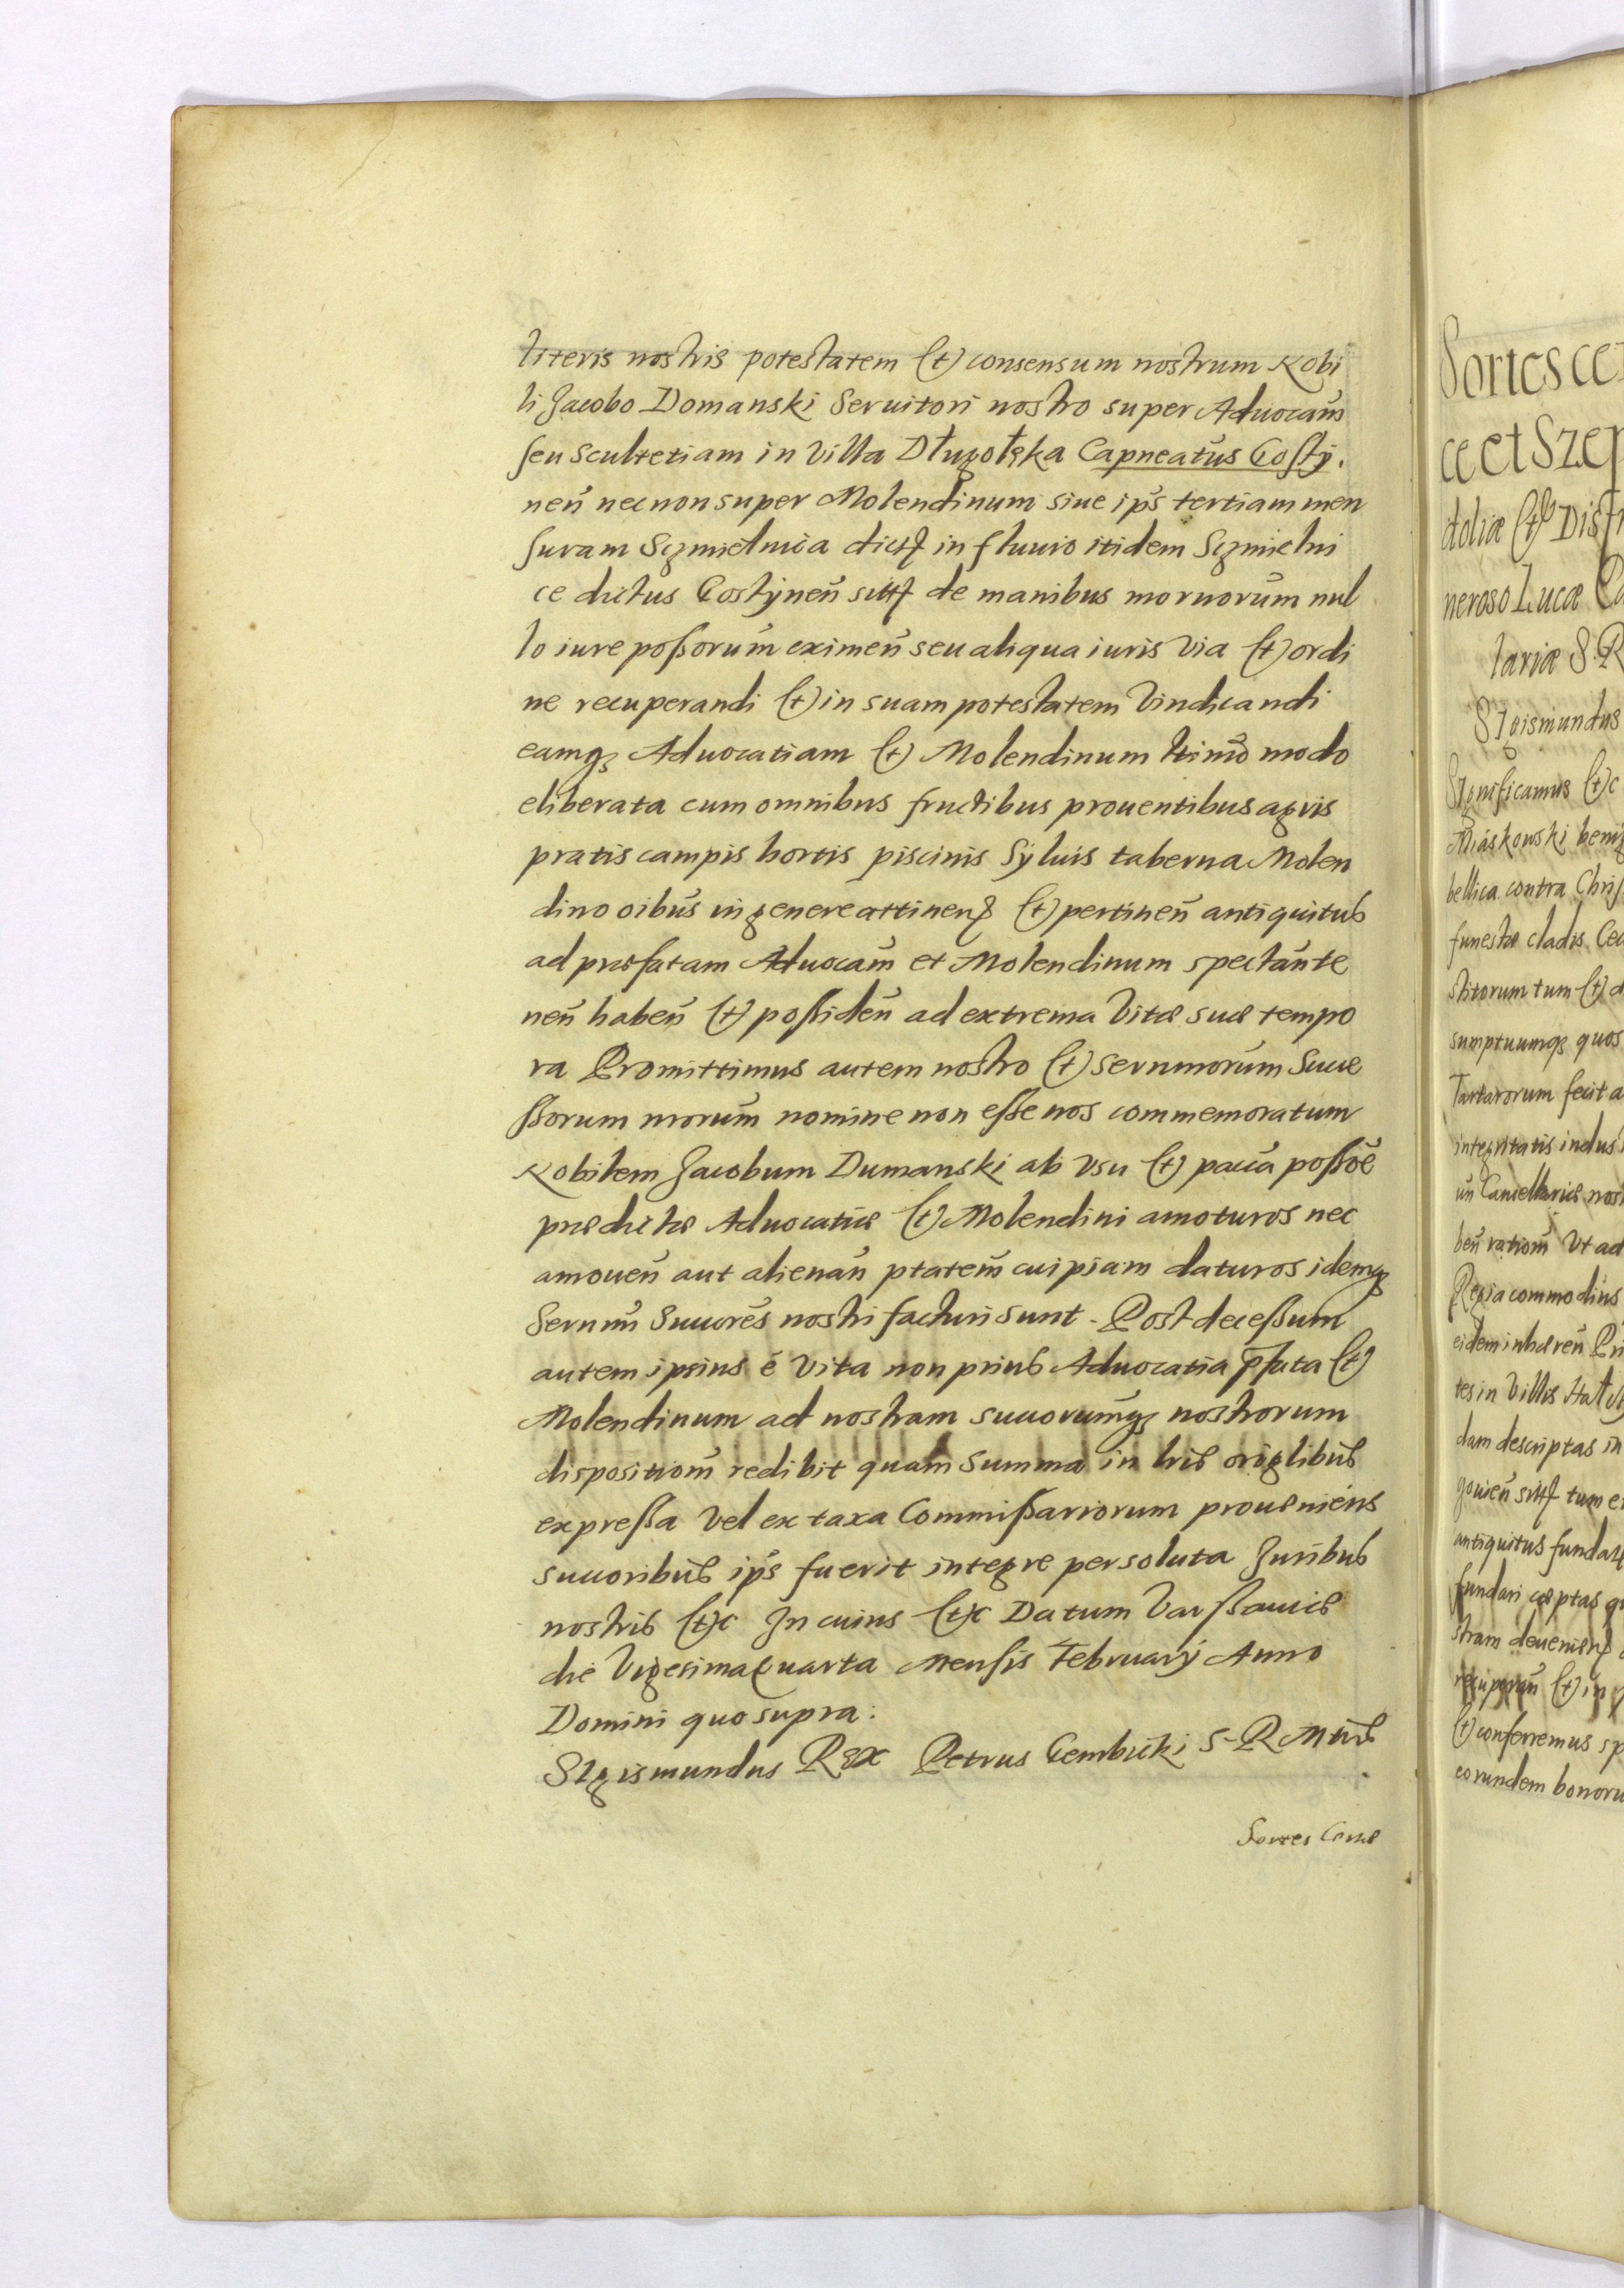 literis nostris potestatem (et) consensum nostrum Nobi
li Jacobo Domanski Seruitori nostro super Aduocam̃
seu Scultetiam in Villa Długołęka Capneatus Costy.
nen̄ necnon super Molendinum siue ip̄s tertiam men
suram Szmielnica dictꝭ in fluuio itidem Szmielni
ce dictus Costynen̄ sittꝭ de manibus mornorum̄ nul
lo iure poßorum̄ eximen̄ seu aliqua iuris Via (et) ordi
ne recuperandi (et) in suam potestatem Vindicandi
eamqꝫ Aduocatiam (et) Molendinum ltimō modo
eliberata cum omnibus fructibus prouentibus agris
pratis campis hortis piscinis Syluis taberna Molen
dino oibūs in genere attinenꝭ (et) pertinen̄ antiquitus
ad præfatam Aduocam̄ et Molendinum spectānte
nen̄ haben̄ (et) poßiden̄ ad extrema Vitæ suæ tempo
ra Promittimus autem nostro (et) Sernmorum̄ Succe
ßorum nrorum̄ nomine non eße nos commemoratum
Nobilem Jacobum Dumanski ab Vsu (et) pacca poßoē
prædictæ Aduocatiæ (et) Molendini amoturos nec
amouen̄ aut alienan̄ ptatem̄ cuipiam daturos idemqꝫ
Sernmī Succores̄ nostri facturi sunt. Post deceßum
autem ipsius é Vita non prius Aduocatia p̄fata (et)
Molendinum ad nostram succorumq̄ꝫ nostrorum
dispositiom̄ redibit quam summa in lris̄ origlibūs
expreßa Vel ex taxa Commißariorum proueniens
succoribūs ip̄s fuerit integre persoluta Juribus
nostris (et)c In cuius (et)c Datum Varßauiæ
die Vigesima Quarta Mensis February Anno
Domini quo supra.
Sigismundus Rex Petrus Gembicki S. R Mtis̄
Sortes Cerræ
Sortes ce
ce et Szep
doliæ (et) Dist
neroso Lucæ
lariæ S. R
Sigismundus
Significamus (et)c
Miáskowski
bellica contra Chris
funestæ cladis Cec
stitorum tum (et) d
sumptuumqꝫ quos
Tartarorum fecit a
integritatis indus
in Cancellariæ nost
ben̄ rationm̄ Vt ad
Regia commodius
eidem inhæren̄ Pri
tes in Villis
dam descriptas in
gouien̄ sittꝭ tum
antiquitus fundaꝭ
fundari cæptas q
stram deuenienꝭ
recuperan̄ (et) in
(et) conferremus sp
eorundem bonoru